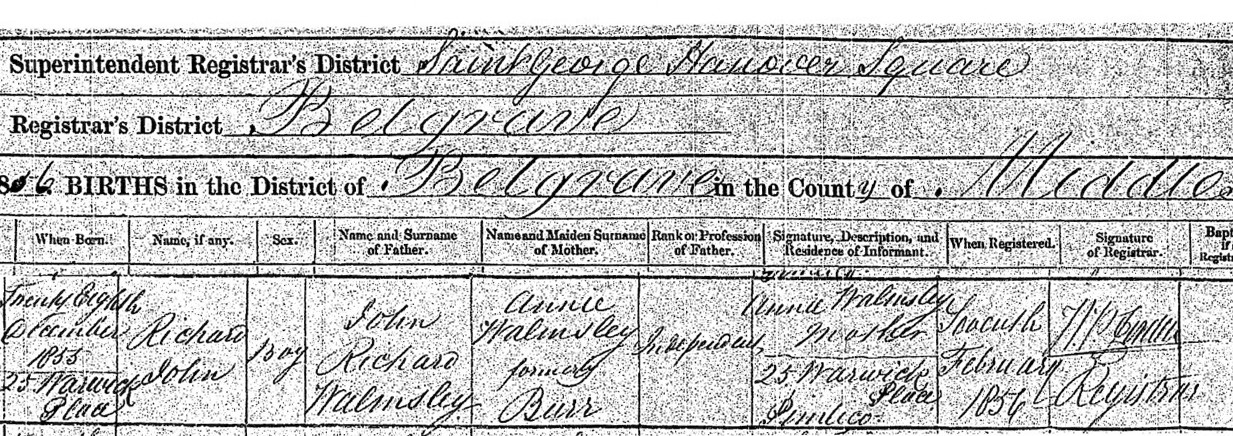 Superintendent Registrar's District Saint George Hanover Square
Registrar's District Belgrave
56 BIRTHS in the District of Belgrave in the County of Middles
When Born.
Name, if any.
Sex.
Name and Surname
of Father.
Name and Maiden Surname
of Mother.
Rank or Profession
of Father.
Signature, Description, and
Residence of Informant.
When Registered.
Signature
of Registrar.
Bapt
if
Registr
Twenty Eighth
December
1855
25 Warwick
Place
Richard
John
Boy
John
Richard
Walmsley
Annie
Walmsley
formerly
Burr
Independent
Walmsley
Mother
25 Warwick
Place
Pimlico
February
1856
Registrar